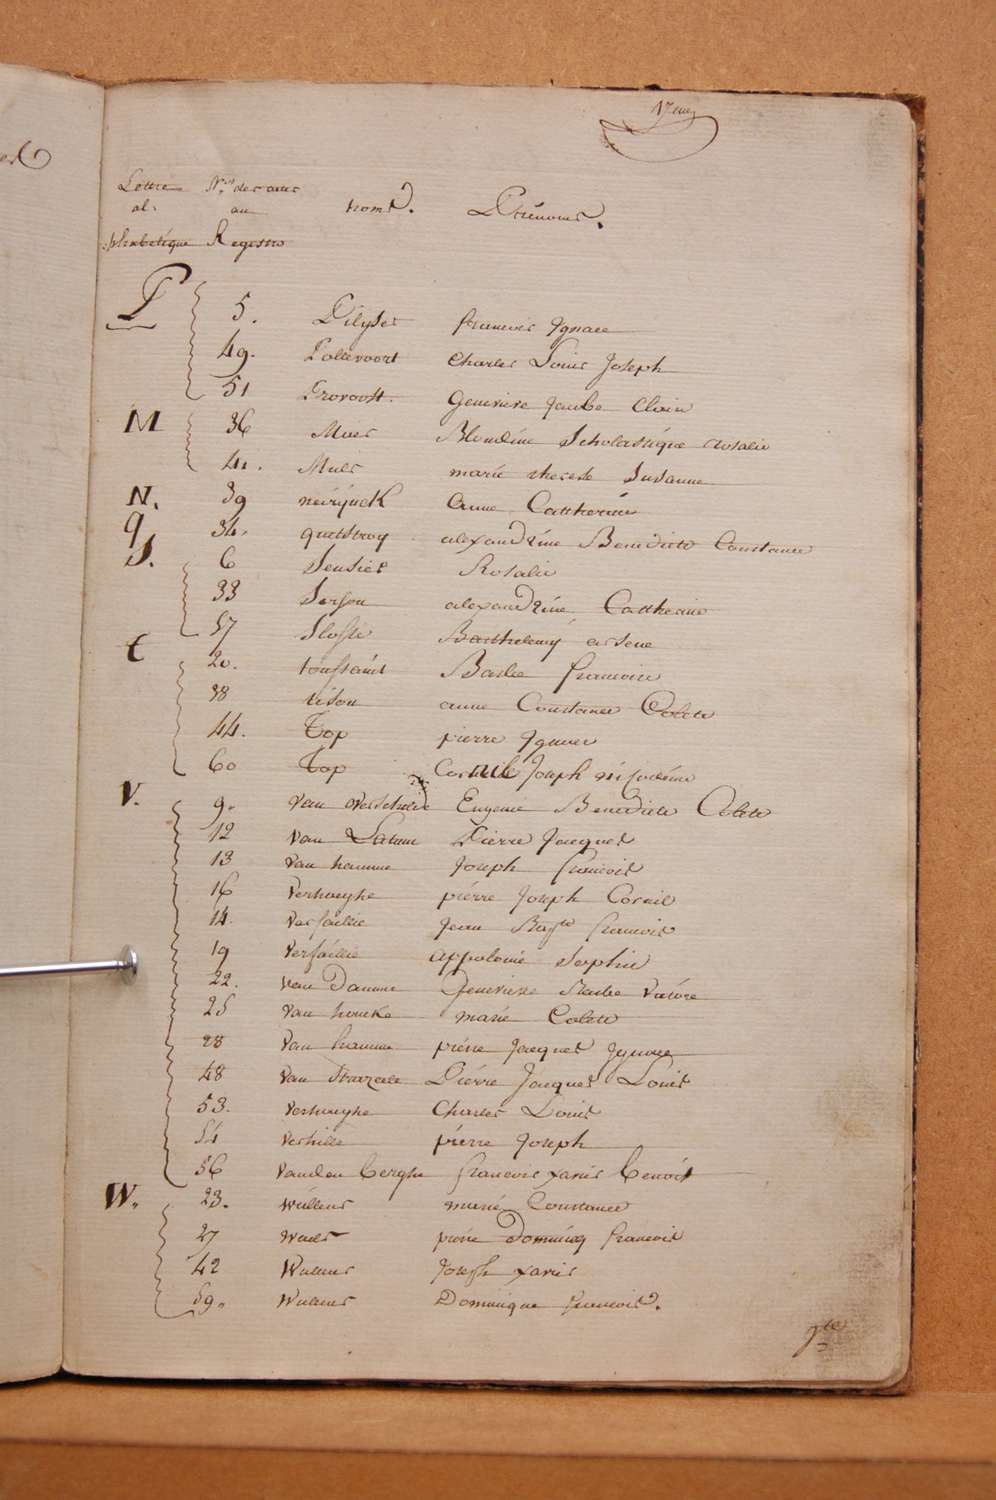 17eme
Lettre N.os des actes
al- au noms. Prénoms.
phabetique Registre
P 5. Pilyser francois Ignace
49. Pollevoort Charles Louis Joseph
51 Provoost. Genevieve Jacobe Clair
M 36 Mues Blondine Scholastique Rosalie
41. Mules marie therese Susanne
N. 39 neirijnck Anne Cattherine
q, 34. quetstroy alexandrine Benedicte Constance
S. 6 Sensier Rosalie
33 Serson alexandrine Cattherine
57 Slosse Barthelemij arsene
t 20. toussaint Barbe francoise
38 tison anne Constance Colete
44. Top pierre Ignace
60 Top Corneile Joseph nicodéme
V. 9. Van overschelde Eugenie Benedicte Colete
12 Van Latum Pierre Jacques
13 Van hamme Joseph francois
16 Verhaeghe piérre Joseph Corneil
14. Verfaillie Jean Bapte francois
19 Verfaillie appolonie Sophie
22. van Damme Genevieve Barbe Valére
25 Van houcke marie Colete
28 Van hamme piérre Jacques Ignace
48 Van Pierre Jacques Louis
53. Verhaeghe Charles Louis
54 Verhille piérre Joseph
56 Vanden berghe francois xavier benoit
W. 23. Willems marie Constance
27 piérre Dominiq francois
42 Willems Joseph xavier
59. Willems Dominique francois.